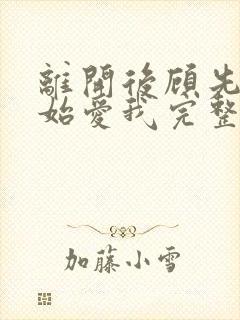 離開後顧先
始愛我完整
加藤小雪